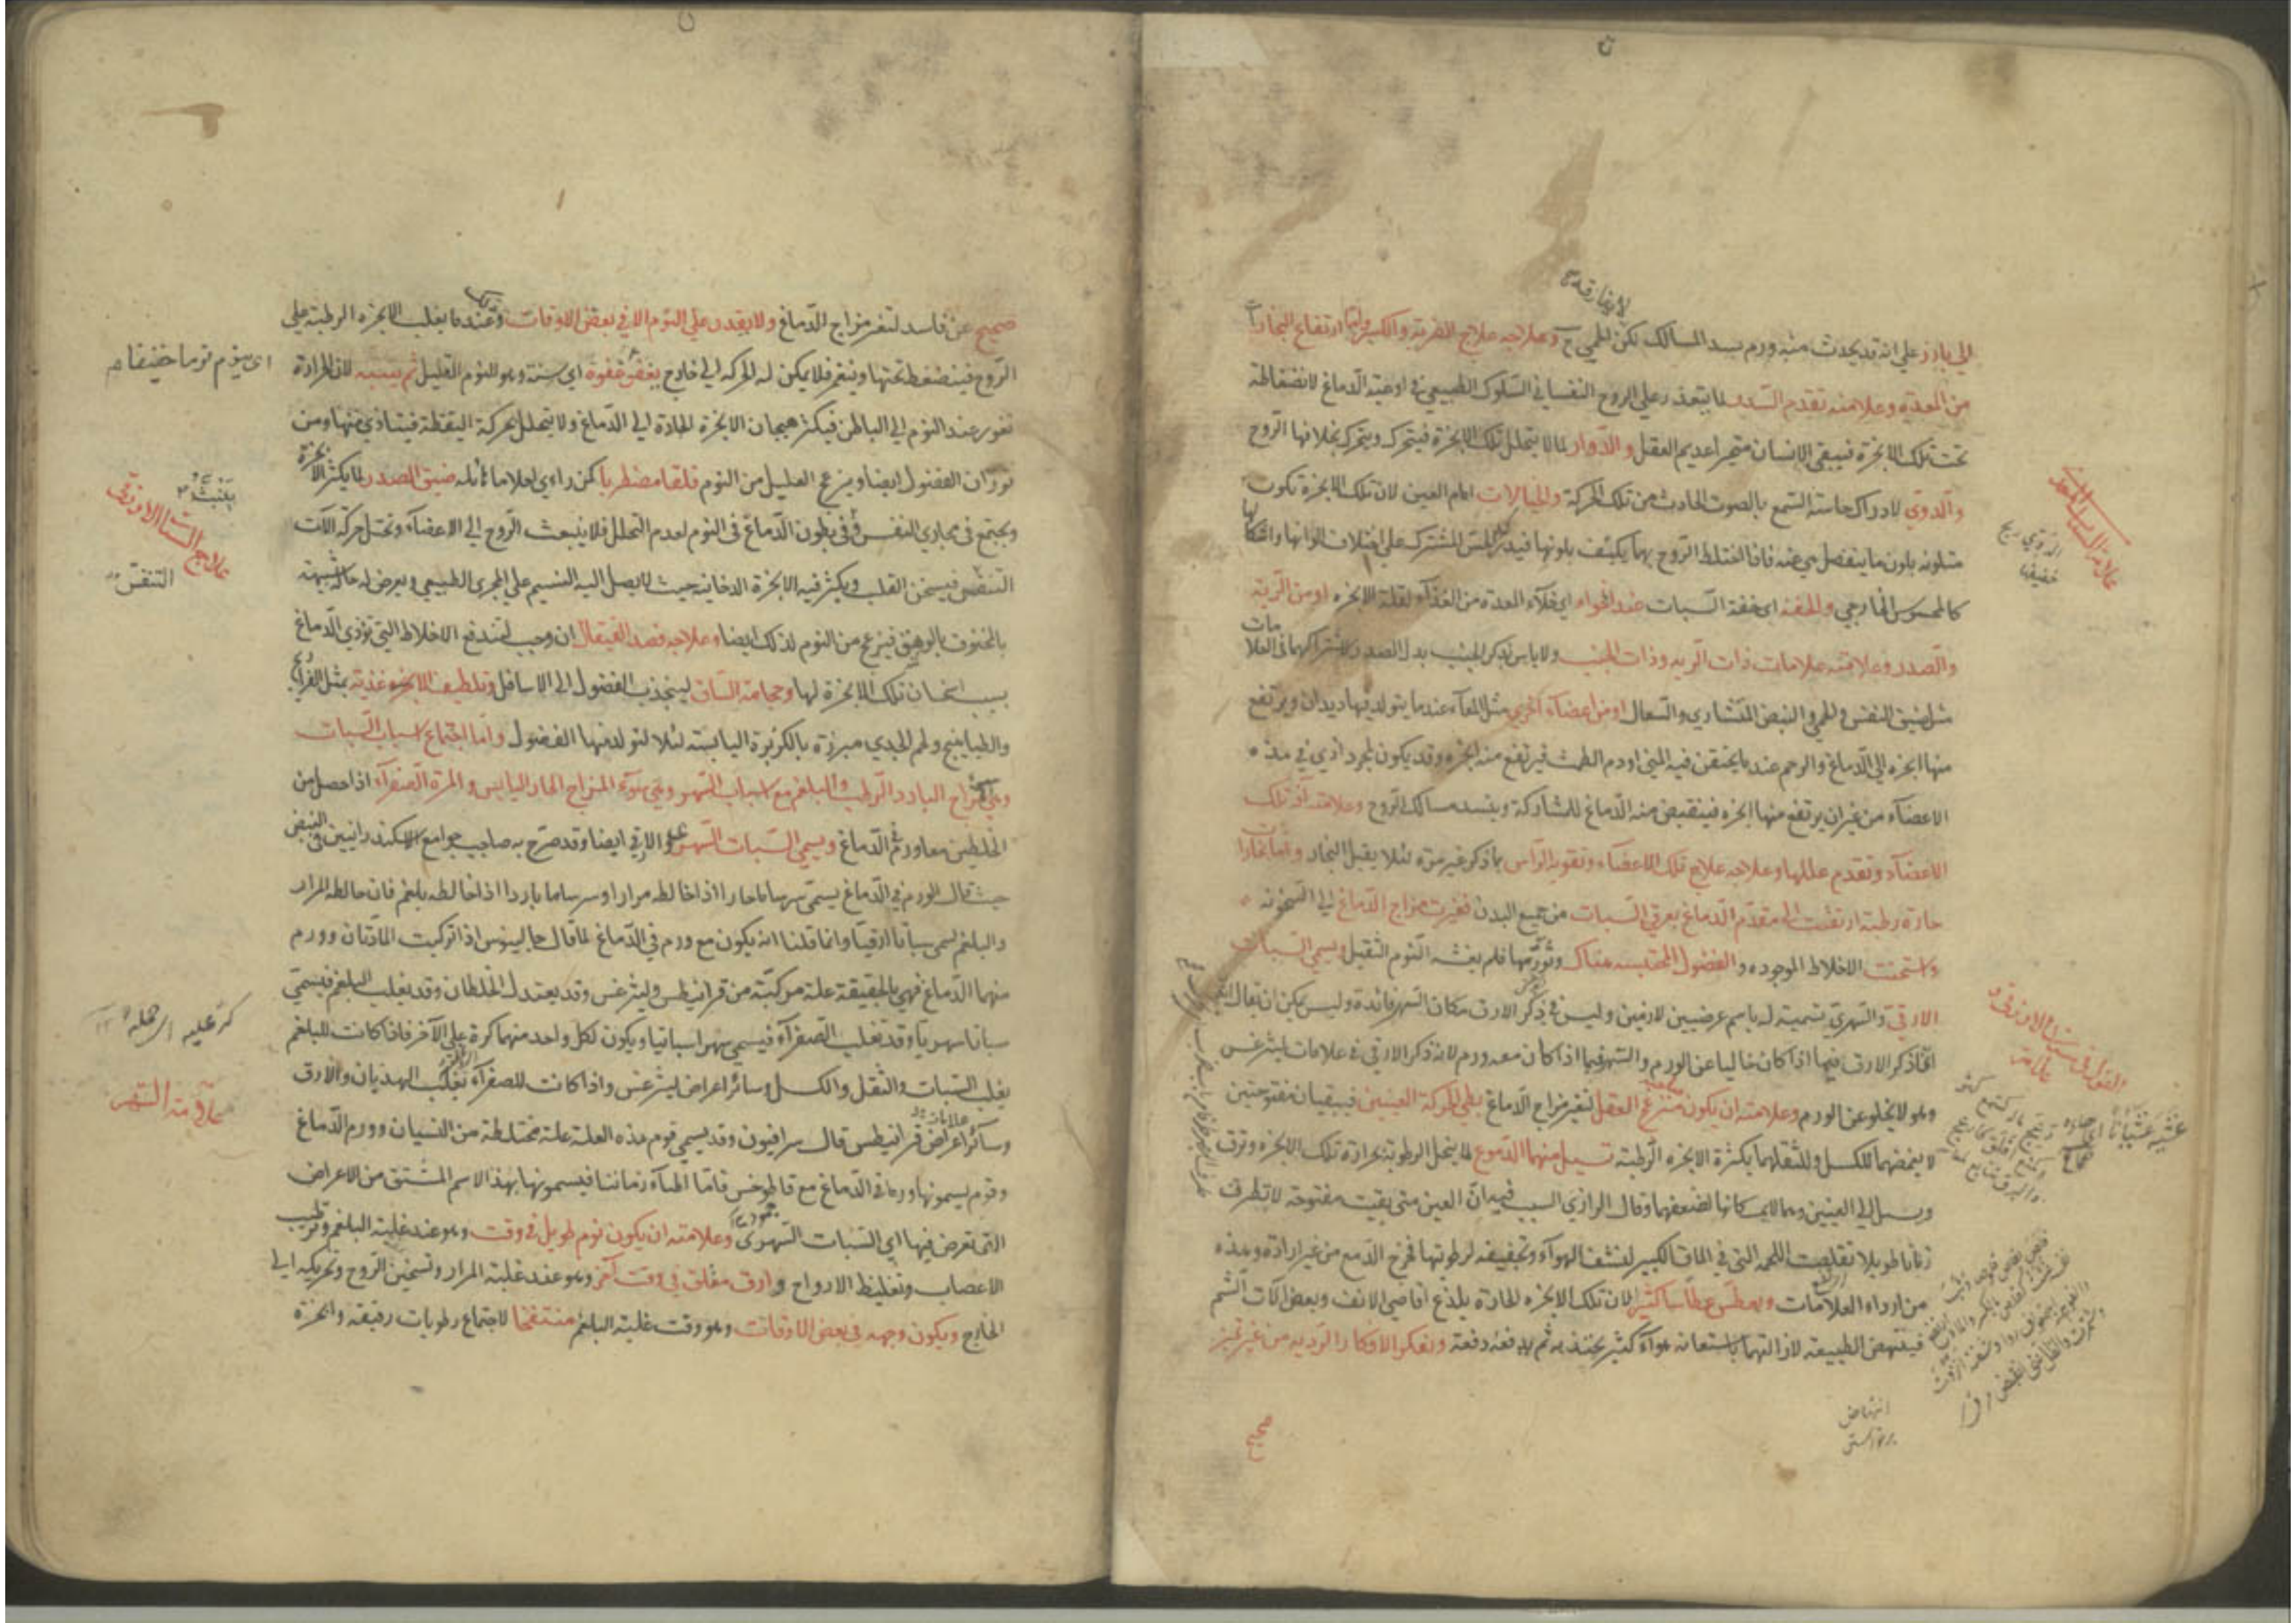 الي بارز علي انه قد يحدث منه ورم يسد المسالك لكن الحمي ح وعلاجه علاج الضربة والكلية وايضا ارتفاع البخارات
لا يفارقه
من المعدة وعلامته تقدم السدد لما يتعذر علي الروح النفساني السلوك الطبيعي في اوعية الدماغ لانضغاطه
تحت تلك الابخرة فيبقي الانسان متحيرا عديم العقل والدوار لما لا يتحلل تلك الابخرة فيتحرك ويتحرك بخلافها الروح
والدوي لادراك حاسة السمع بالصوت الحادث من تلك الحركة والخيالات امام العين لان تلك الابخرة تكون
متلونه بلون ما ينفصل هي عنه فاذا اختلط الروح بها يكيف بلونها فيدركه الحس المشترك علي اختلاف الوانها واشكالها
كالمحسوس الخارجي والخفة اي خفة السبات عند الخواء اي خلاء المعدة من الغذاء لقلة الابخرة او من الرية
والصدر وعلامته علامات ذات الريه وذات الجنب ولا باس بذكر الجنب بدل الصدر لاشتراكهما في العلامات
مثل ضيق النفس والحمي والنبض المنشاري والسعال او من اعضاء اخري مثل المعاء عندما يتولد فيها ديدان ويرتفع
منها ابخره الي الدماغ والرحم عندما يحتقن فيه المني او دم الطمث فيرتفع منه ابخره وقد يكون لمجرد اذي في هذه
الاعضاء من غير ان يرتفع منها ابخره فينقبض منه الدماغ للمشاركة وينسد مسالك الروح وعلامته آفة تلك
الاعضاء وتقدم عللها وعلاجه علاج تلك الاعضاء وتقوية الراس بما ذكر غير مرة لئلا يقبل البخار واما بخارات
حارة رطبة ارتفعت الي مقدم الدماغ بعرق السبات من جميع البدن فغيرت مزاج الدماغ الي السخونة
واسخنت الاخلاط الموجوده والفضول المحتبسه هناك وثورتها فلم يغشه النوم الثقيل ويسمي السبات
الارقي والسهري تسمية له باسم عرضيين لازمين وليس في ذكر الارق مكان السهر فائدة وليس يمكن ان يقال انه
انما ذكر الارق فيما اذا كان خاليا عن الورم والسهر فيما اذا كان معه ورم لانه ذكر الارق في علامات ليثرغس
وهو لا يخلو عن الورم وعلامته ان يكون منزعج العقل لتغير مزاج الدماغ بطي الحركة العينين فيبقيان مفتوحتين
لا يغمضهما للكسل ولثقلهما بكثرة الابخرة الرطبة تسيل منهما الدموع لما ينحل الرطوبة بحرارة تلك الابخرة وترق
ويسيل الي العينين وهما لا يمسكانها لضعفهما وقال الرازي السبب فيه ان العين متي بقيت مفتوحة لا تطرف
زمانا طويلا تقلصت اللحمة التي في الماق الكبير لنشف الهواء وتجفيفه لرطوبتها فخرج الدمع من غير ارادة وهذه
من ارداء العلامات ويعطس عطاسا كثيرا لان تلك الابخره الحادة يلذع اقاصي الانف وبعض آلات الشم
فينتهض الطبيعة لازالتها باستعانة هواء كثير يجتذبه ثم يدفعه دفعة ويفكر الافكار الردية من غير تميز
صحيح
القول في سبات الارقي
علامة السبات المعدي
الدوي ريح خفيفها
انتهاض برخواستن
صحيح عن فاسد لتغير مزاج الدماغ ولا يقدر علي النوم الا في بعض الاوقات وذلك عندما يغلب الابخره الرطبة علي
الروح فينضغط تحتها وينغمر فلا يمكن له الحركه الي خارج يغفو غفوة اي سنة وهو النوم القليل ثم ينتبه لان الحرارة
تغور عند النوم الي الباطن فيكثر هيجان الابخرة الحادة الي الدماغ ولا يتحلل بحركة اليقظة فيتاذي منها ومن
ثوران الفضول ايضا وينزعج العليل من النوم قلقا مضطربا كمن راي احلاما هائلة ضيق الصدر لما يكثر الابخرة
ويجتمع في مجاري النفس وفي بطون الدماغ في النوم لعدم التحلل فلا ينبعث الروح الي الاعضاء وتختل حركة آلات
التنفس فيسخن القلب ويكثر فيه الابخرة الدخانية حيث لا يصل اليه النسيم علي المجري الطبيعي ويعرض له حالة شبيهة
بالخنوق بالوهق فينزعج من النوم لذلك ايضا وعلاجه فصد القيفال ان وجب لتندفع الاخلاط التي تؤذي الدماغ
بسبب اسخان تلك الابخرة لها وحجامة الساق لينجذب الفضول الي الاسافل وتلطيف الاغذية بمثل الفراريج
والطياهيج ولحم الجدي مبرزة بالكزبرة اليابسة لئلا تتولد منها الفضول واما اجتماع اسباب السبات
وهي المزاج البارد الرطب والبلغم مع اسباب السهر وهي سوء المزاج الحار اليابس والمرة الصفراء اذا حصل من
الخلطين معا ورم في الدماغ ويسمي السبات السهري والارقي ايضا وقد صرح به صاحب جوامع الاسكندرانيين في النبض
حيث قال الورم في الدماغ يسمي سرساما حارا اذا خالطه مرار او سرساما باردا اذا خالطه بلغم فان خالطه المرار
والبلغم يسمي سباتا ارقيا وانما قلنا انه يكون مع ورم في الدماغ لما قال جالينوس اذا تركبت المادتان وورم
منهما الدماغ فهي بالحقيقة علة مركبة من قرانيطس وليثرغس وقد يعتدل الخلطان وقد يغلب البلغم فيسمي
سباتا سهريا وقد تغلب الصفراء فيسمي سهرا سباتيا ويكون لكل واحد منهما كرة علي الآخر فاذا كانت للبلغم
يغلب السبات والثقل والكسل وسائر اعراض ليثرغس واذا كانت للصفراء يغلب الهذيان والارق
وسائر اعراض قرانيطس قال سرافيون وقد يسمي قوم هذه العلة علة مختلطة من النسيان وورم الدماغ
وقوم يسمونها ورما في الدماغ مع قاطوخس فاما اطباء زماننا فيسمونها بهذا الاسم المشتق من الاعراض
التي تعرض فيها اي السبات السهري وعلامته ان يكون نوم طويل في وقت وهو عند غلبة البلغم وترطيب
الاعصاب وتغليظ الارواح وارق مقلق في وقت آخر وهو عند غلبة المرار وتسخين الروح وتحريكه الي
الخارج ويكون وجهه في بعض الاوقات وهو وقت غلبة البلغم منتفخا لاجتماع رطوبات رقيقة وابخرة
اي ينوم نوما خفيفا
علاج السبات الارقي
التنفس
علامة السهر